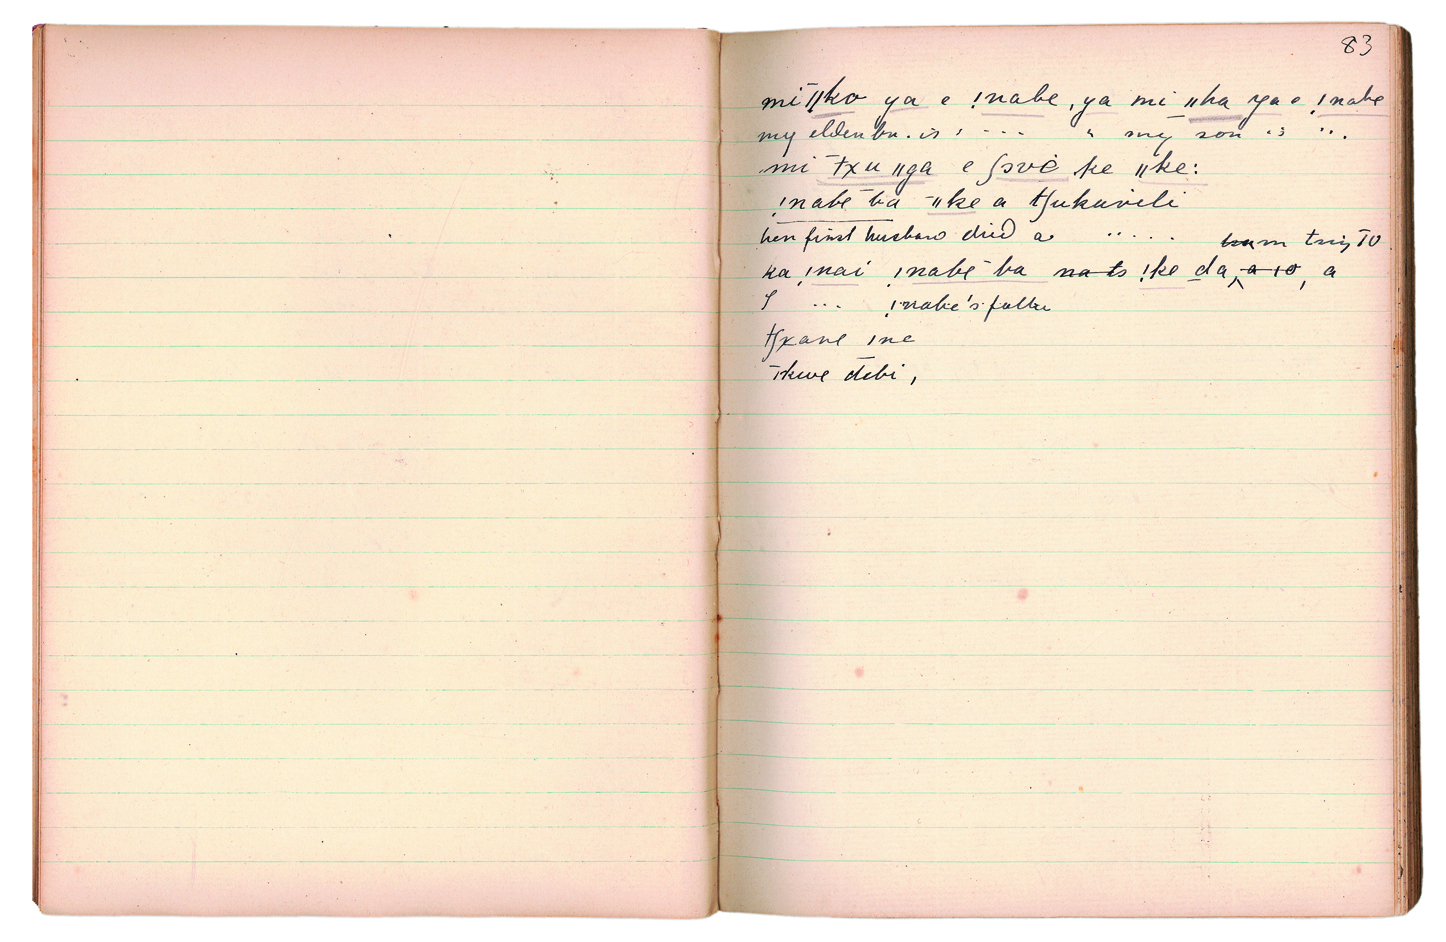 83
mi ǁko ya e ǃnabe, ya mi ǁha ya e ǃnabe
my elder br. is ǃ ... " my son is "..
mi txu ǁga e ʃove ke ǁke:
ǃnabe ba ǁke a tʃukuvili
her first husband died a .. ...
ka ǃnai ǃnabe ba ǃke da, a
ǃnabe's father
tʃxane ine
debi,